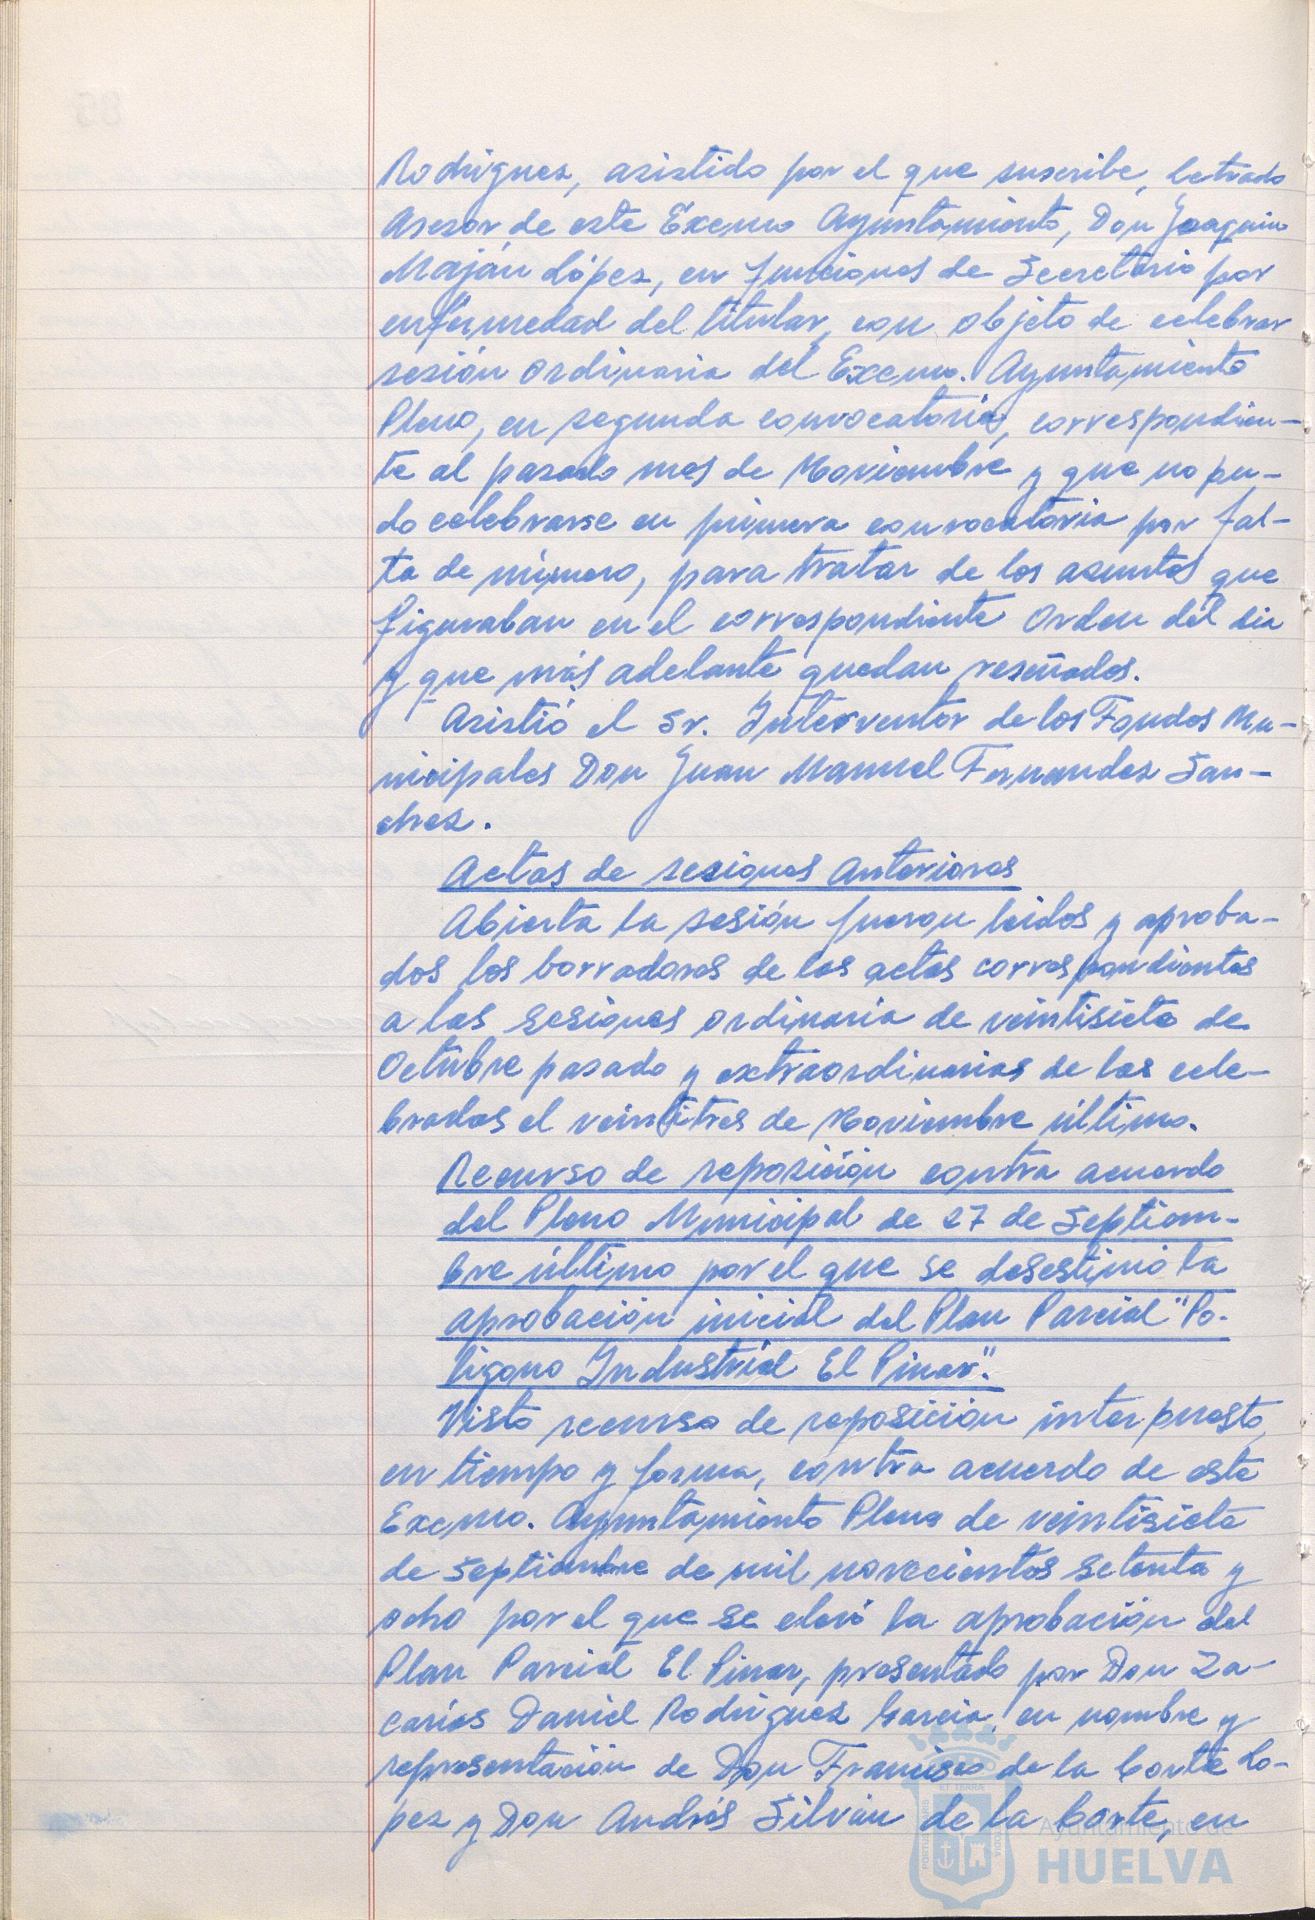 Rodriguez, asistido por el que suscribe, letrado
Asesor de este Excmo Ayuntamiento, Don Joaquin
Maján López, en funciones de Secretario por
enfermedad del titular, con objeto de celebrar
sesión ordinaria del Excmo. Ayuntamiento
Pleno, en segunda convocatoria, correspondien-
te al pasado mes de Noviembre y que no pu-
do celebrarse en primera convocatoria por fal-
ta de número, para tratar de los asuntos que
figuraban en el correspondiente Orden del dia
y que más adelante quedan reseñados.
Asistió el Sr. Interventor de los Fondos Mu-
nicipales Don Juan Manuel Fernandez San-
chez.
Actas de sesiones anteriores
Abierta la sesión fueron leidos y aproba-
dos los borradores de las actas correspondientes
a las sesiones ordinaria de veintisiete de
Octubre pasado y extraordinarias de las cele-
bradas el veintitres de Noviembre último.
Recurso de reposición contra acuerdo
del Pleno Municipal de 27 de Septiem-
bre último por el que se desestimó la
aprobación inicial del Plan Parcial "Po-
ligono Industrial El Pinar".
Visto recurso de reposición interpuesto,
en tiempo y forma, contra acuerdo de este
Excmo. Ayuntamiento Pleno de veintisiete
de Septiembre de mil novecientos setenta y
ocho por el que se la aprobación del
Plan Parcial El Pinar, presentado por Don Za-
carías Daniel Rodriguez Garcia, en nombre y
representación de Don Francisco de la Corte Lo-
pez y Don Andrés Silván de la Corte, en
Ayuntamiento de
HUELVA